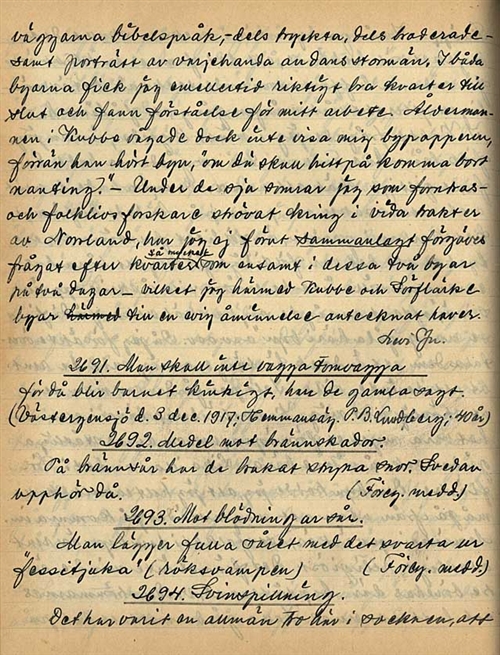 väggarna bibelspråk, - dels tryckta, dels broderade -
samt porträtt av varjehanda andans stormän. I båda
byarna fick jag emellertid riktigt bra kvarter till
slut och fann förståelse för mitt arbete. Ålderman-
nen i Kubbe vågade dock inte visa mig byapapperen,
förrän han hört byn, "om du skull hittpå komma bort
nanting." - Under de sja somrar jag som fornkas-
och folklivsforskare strövat kring i vida trakter
av Norrland, har jag ej förut sammanlagt förgäves
så mycket
frågat efter kvarter som ensamt i dessa två byar
på två dagar - vilket jag härmed Kubbe och Sörflärke
byar härmed till en evig åminnelse antecknat haver.
2691. Man skall inte vagga tomvagga
för då blir barnet kinkigt, har de gamla sagt.
(Västergensjö d. 3 dec. 1917, Hemmansäg. P.B. Lundberg, 40 år)
2692. Medel mot brännskador.
På brännsår har de brukat stryka snor. Svedan
upphör då. (Föreg. medd.)
2693. Mot blödning ur sår.
Man lägger fulla såret med det svarta ur
"fessetjuka" (röksvampen) (Föreg. medd.)
2694. Svinspillning.
Det har varit en allmän tro här i socknen, att